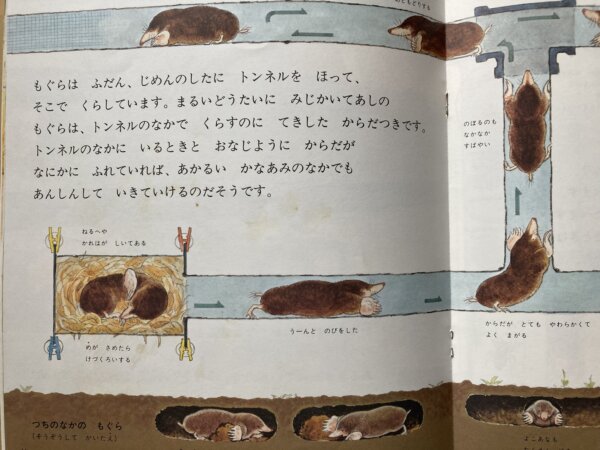 もどもどりする
もぐらは ふだん、じめんのしたに トンネルを ほって、
そこで くらしています。まるいどうたいに みじかいてあしの
もぐらは、トンネルのなかで くらすのに てきした からだつきです。
トンネルのなかに いるときと おなじように からだが
なにかに ふれていれば、あかるい かなあみのなかでも
あんしんして いきていけるのだそうです。
のぼるのも
なかなか
すばやい
ねるへや
かれはが しいてある
めが さめたら
けづくろいする
うーんと のびをした
からだが とても やわらかくて
よく まがる
つちのなかの もぐら
(そうぞうして かいたえ)
よこあなも